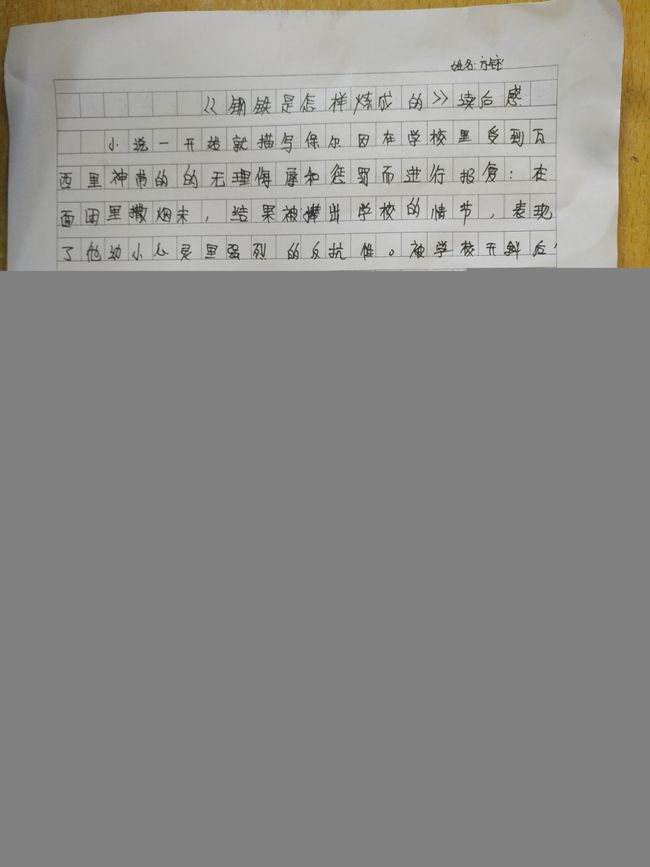 姓名:方
《钢铁是怎样炼成的》读后感
小说一开始就描写保尔因在学校里受到瓦
西里神带的的无理侮辱和惩罚而进行报复:在
面团里撒烟末,结果被撵出学校的情节,表现
了他幼小心灵里强烈的反抗性。被学校开斜后,